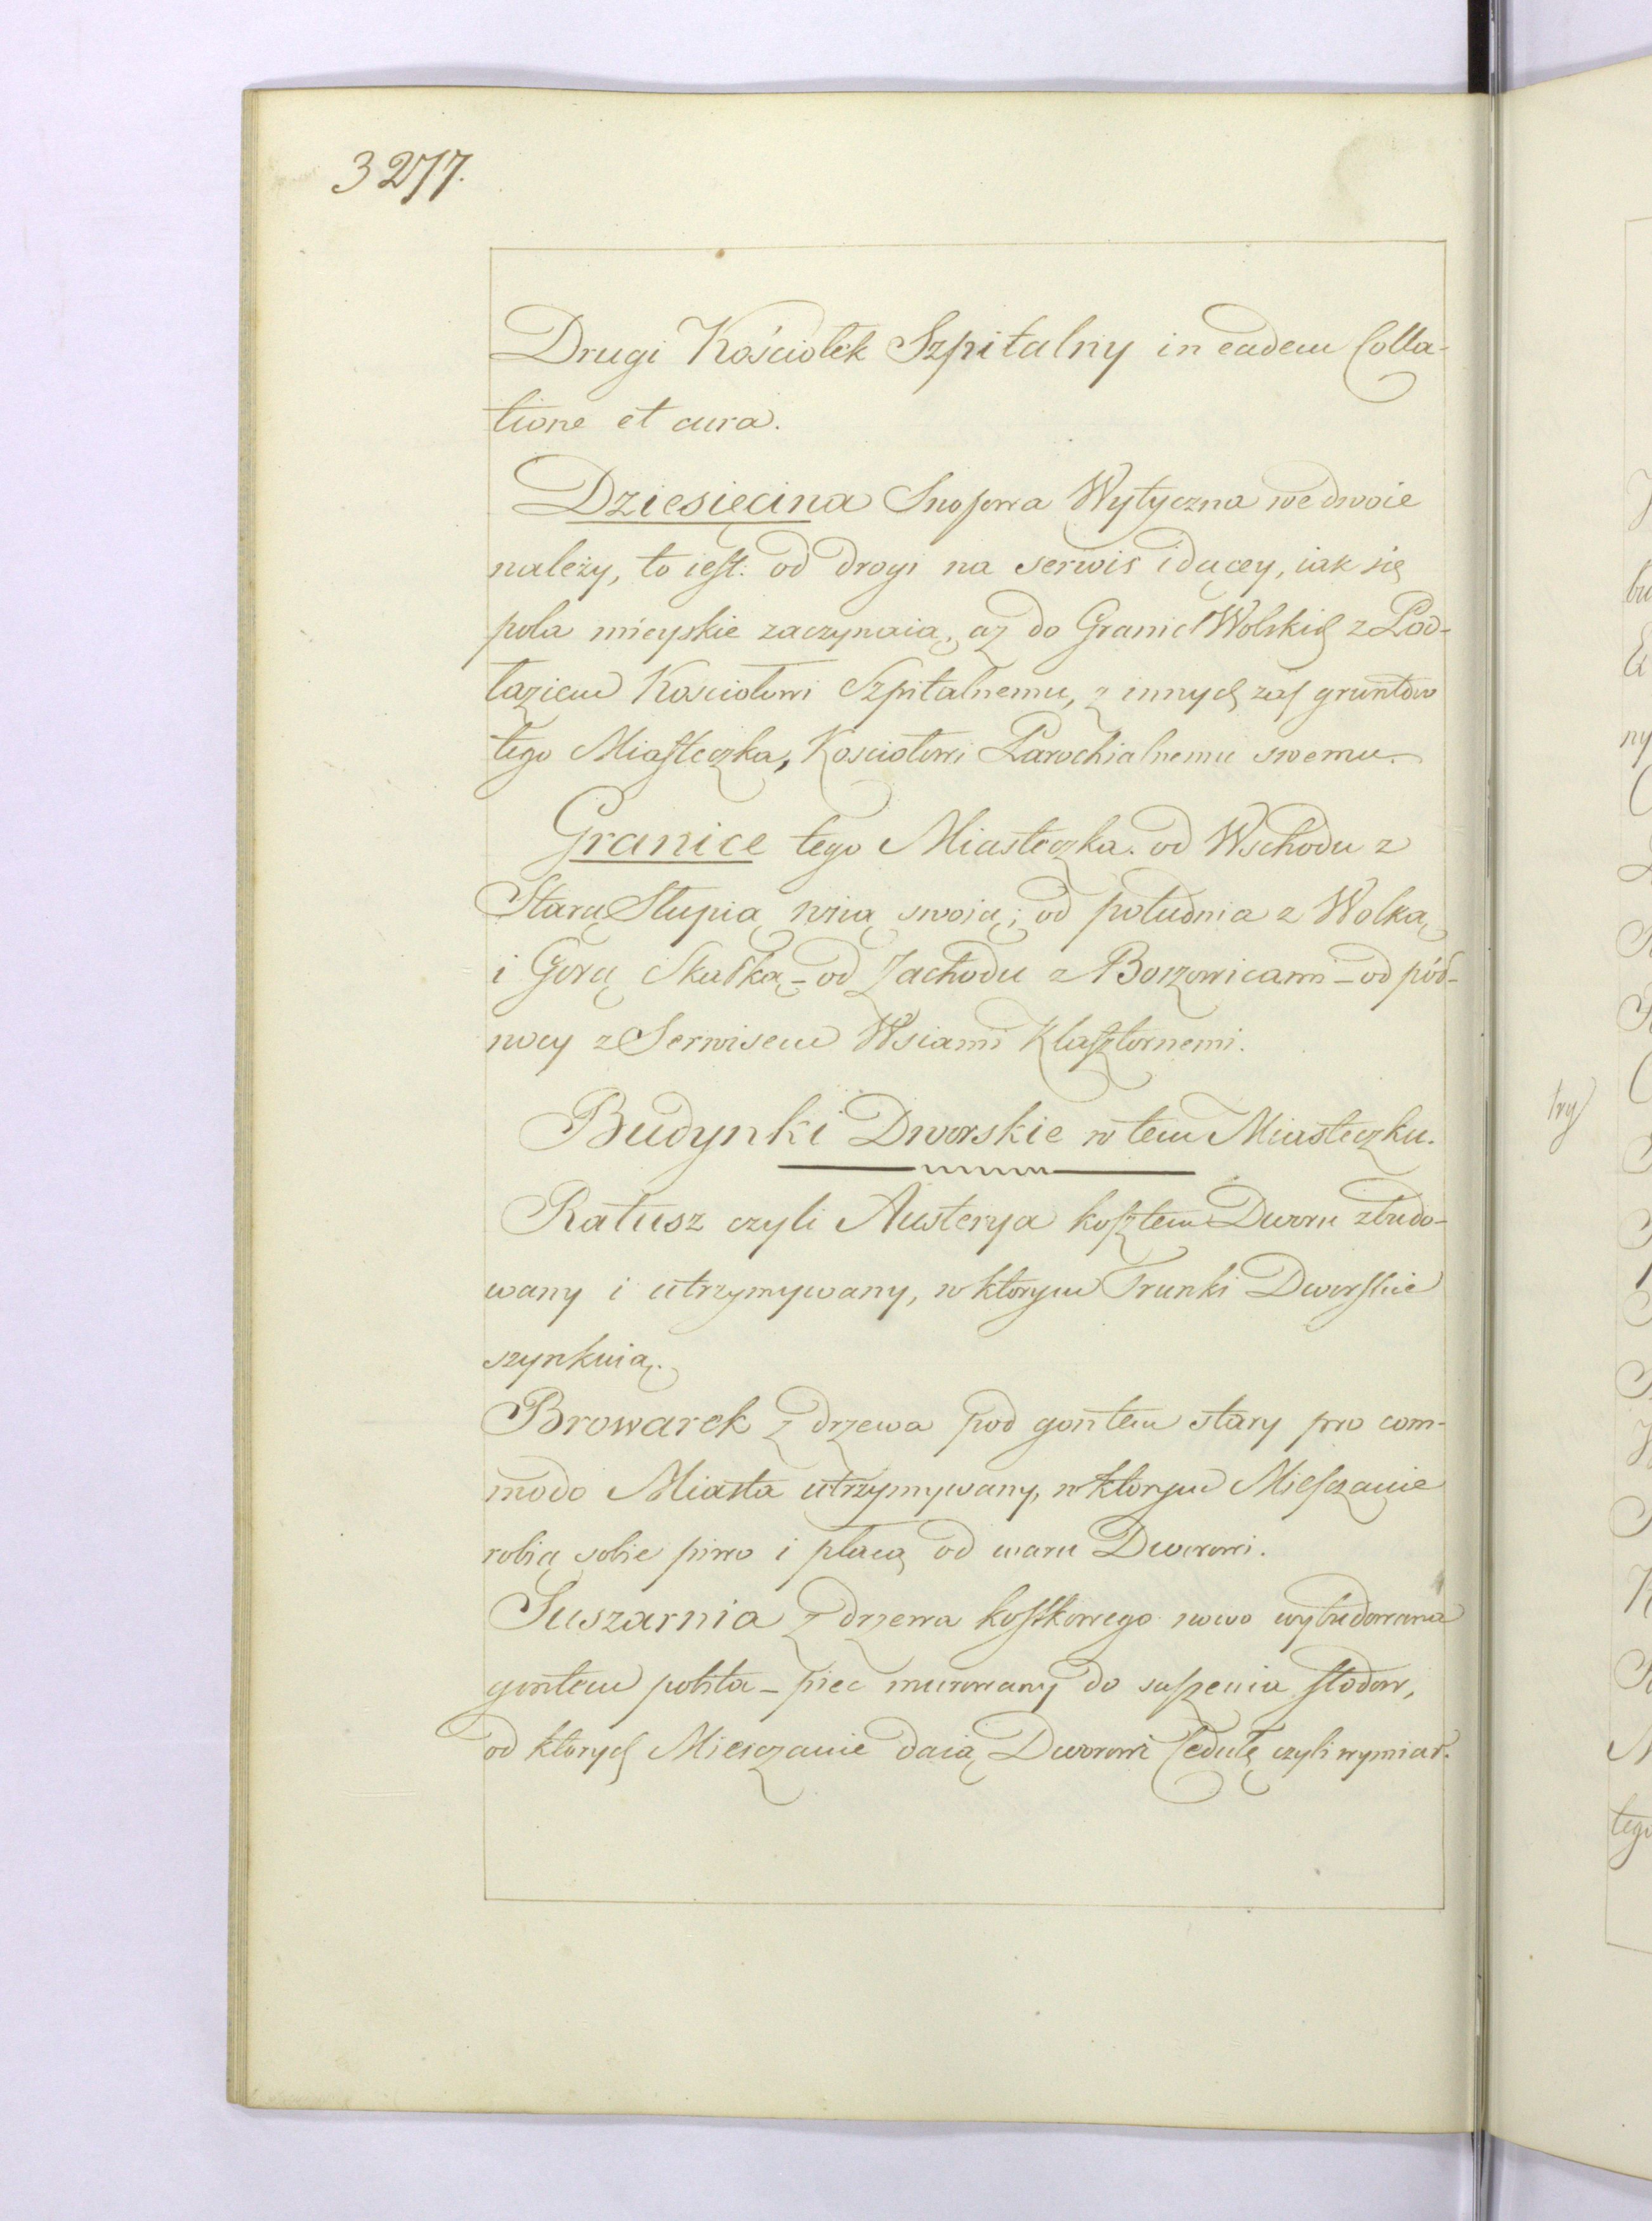 3277.
Drugi Kościołek Szpitalny in eadem Colla-
tione et cura.
Dziesięcina Snopowa Wytyczna we dwoie
należy, to iest: od drogi na serwis idącey, iak się
pola mieyskie zaczynaią, aż do Granic Wolskich z Pod-
łaziem Kosciołowi Szpitalnemu, z innych zaś gruntów
tego Miasteczka, Kosciołowi Parochialnemu swemu.
Granice tego Miasteczka. od Wschodu z
Starą Słupią wsią swoią; od południa z Wolką
i Górą Skałką - od Zachodu z Boszowicami - od pół-
nocy z Serwisem Wsiami Klasztornemi.
Budynki Dworskie w tem Miasteczku.
Ratusz czyli Austerya kosztem Dworu zbudo-
wany i utrzymywany, w ktorym Trunki Dworskie
szynkuią.
Browarek z drzewa pod gontem stary pro com-
modo Miasta utrzymywany, w ktorym Miesczanie
robią sobie piwo i płacą od waru Dworowi.
Suszarnia z drzewa kostkowego nowo wybudowana
gontem pobita - piec murowany do suszenia słodow,
od ktorych Miesczanie daią Dworowi Cedułę czyli wymiar.
try
tego